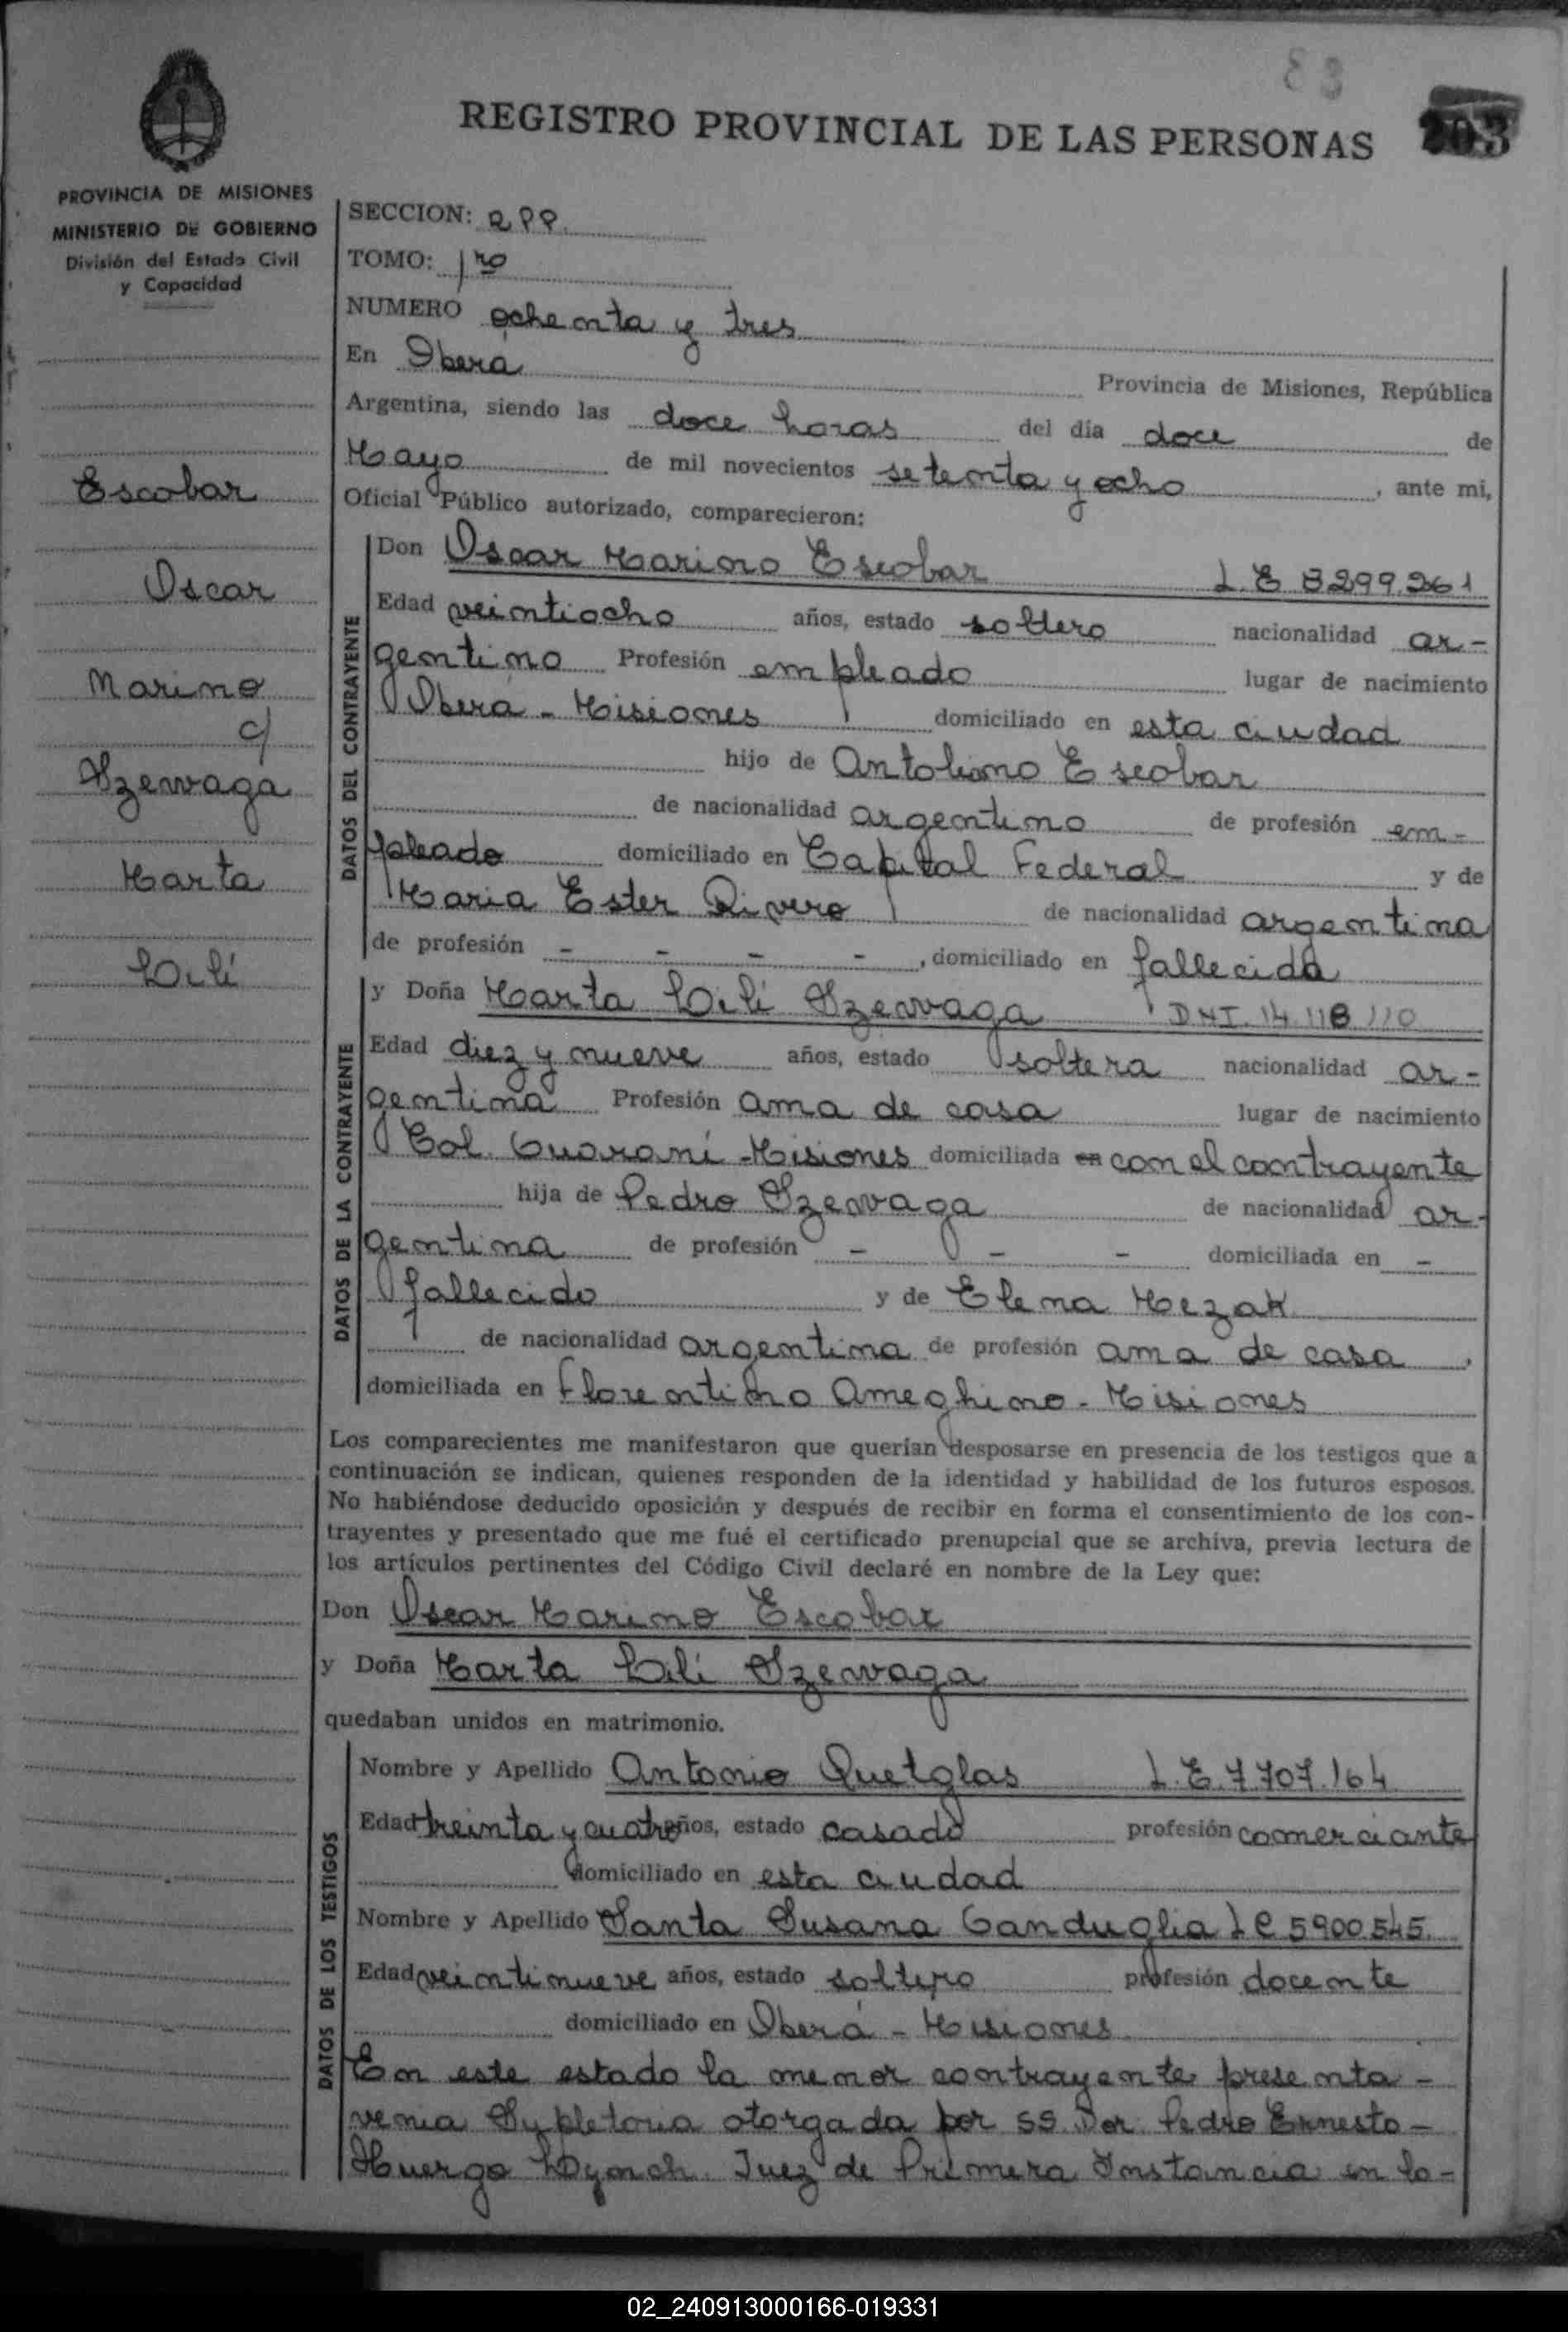 83
REGISTRO PROVINCIAL DE LAS PERSONAS 203
PROVINCIA DE MISIONES
MINISTERIO DE GOBIERNO
División del Estado Civil
y Capacidad
Escobar
Oscar
Marino
c/
Szewaga
Marta
Lilí
SECCION: RPP.
TOMO: 1ro
NUMERO ochenta y tres
En Oberá Provincia de Misiones, República
Argentina, siendo las doce horas del día doce de
Mayo de mil novecientos setenta y ocho, ante mi,
Oficial Público autorizado, comparecieron:
DATOS DEL CONTRAYENTE
Don Oscar Marino Escobar L.E 8299.261
Edad veintiocho años, estado soltero nacionalidad ar-
gentino Profesión empleado lugar de nacimiento
Oberá - Misiones domiciliado en esta ciudad
hijo de Antoliano Escobar
de nacionalidad argentino de profesión em-
pleado domiciliado en Capital Federal y de
Maria Ester Rivero de nacionalidad argentina
de profesión - - - -, domiciliado en fallecida
DATOS DE LA CONTRAYENTE
y Doña Marta Lilí Szewaga DNI. 14.118.110
Edad diez y nueve años, estado soltera nacionalidad ar-
gentina Profesión ama de casa lugar de nacimiento
Col. Guaraní - Misiones domiciliada en con el contrayente
hija de Pedro Szewaga de nacionalidad ar-
gentina de profesión - - - domiciliada en -
fallecido y de Elena Mezak
de nacionalidad argentina de profesión ama de casa,
domiciliada en Florentino Ameghino - Misiones
Los comparecientes me manifestaron que querían desposarse en presencia de los testigos que a
continuación se indican, quienes responden de la identidad y habilidad de los futuros esposos.
No habiéndose deducido oposición y después de recibir en forma el consentimiento de los con-
trayentes y presentado que me fué el certificado prenupcial que se archiva, previa lectura de
los artículos pertinentes del Código Civil declaré en nombre de la Ley que:
Don Oscar Marino Escobar
y Doña Marta Lilí Szewaga
quedaban unidos en matrimonio.
DATOS DE LOS TESTIGOS
Nombre y Apellido Antonio Quetglas L.E.7707.164
Edad treinta y cuatro años, estado casado profesión comerciante
domiciliado en esta ciudad
Nombre y Apellido Santa Susana Ganduglia L C 5900.545.
Edad veintinueve años, estado soltero profesión docente
domiciliado en Oberá - Misiones
En este estado la menor contrayente presenta -
venia Supletoria otorgada por SS. Dor. Pedro Ernesto -
Huergo Lynch. Juez de Primera Instancia en lo -
02_240913000166-019331